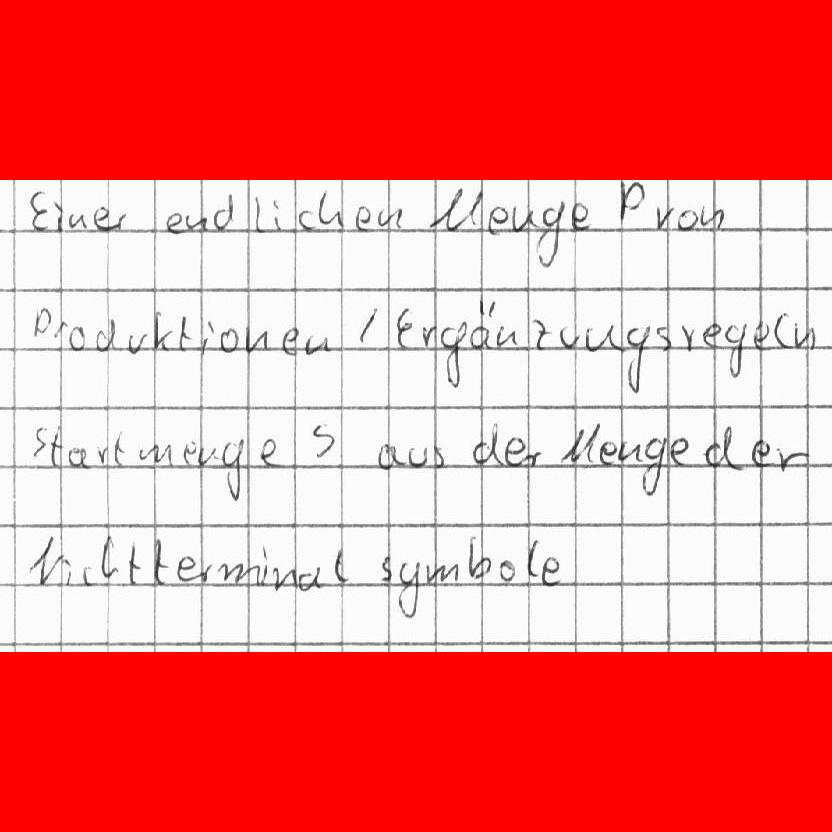 Einer endlichen Menge P von
Produktionen / Ergänzungsregeln
Startmenge S aus der Menge der
Nichtterminal symbole